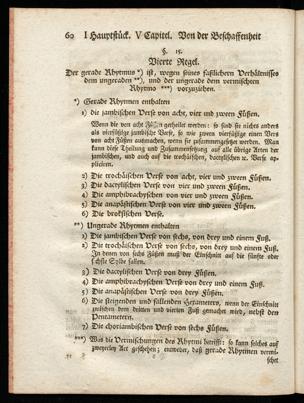 60 I Hauptstück. V Capitel. Von der Beschaffenheit
§. 15.
Vierte Regel.
Der gerade Rhytmus *) ist, wegen seines faßlichern Verhältnisses
dem ungeraden **), und der ungerade dem vermischten
Rhytmo ***) vorzuziehen.
*) Gerade Rhytmen enthalten
1) die jambischen Verse von acht, vier und zween Füßen.
Wenn die von acht Füßen getheilet werden: so sind sie nichts anders
als vierfüßige jambische Verse, so wie zween vierfüßige einen Vers
von acht Füßen ausmachen, wenn sie zusammengesetzet werden. Man
kann diese Theilung und Zusammensetzung auf alle übrige Arten der
jambischen, und auch auf die trochäischen, dactylischen ꝛc. Verse ap-
pliciren.
2) Die trochäischen Verse von acht, vier und zween Füßen.
3) Die dactylischen Verse von vier und zween Füßen.
4) Die amphibrachyschen von vier und zween Füßen.
5) Die anapästischen Verse von vier und zween Füßen.
6) Die brokischen Verse.
**) Ungerade Rhytmen enthalten
1) Die jambischen Verse von sechs, von drey und einem Fuß.
2) Die trochäischen Verse von sechs, von drey und einem Fuß.
In denen von sechs Füßen muß der Einschnitt auf die fünfte oder
sechste Sylbe fallen.
3) Die dactylischen Verse von drey Füßen.
4) Die amphibrachyschen Verse von drey Füßen.
5) Die anapästischen Verse von drey Füßen.
6) Die steigenden und fallenden Hexameters, wenn der Einschnitt
zwischen dem dritten und vierten Fuß gemachet wird, nebst den
Pentametern.
7) Die choriambischen Verse von sechs Füßen.
***) Was die Vermischungen des Rhytmi betrifft: so kann solches auf
zweyerley Art geschehen; entweder, daß gerade Rhytmen vermi-
schet